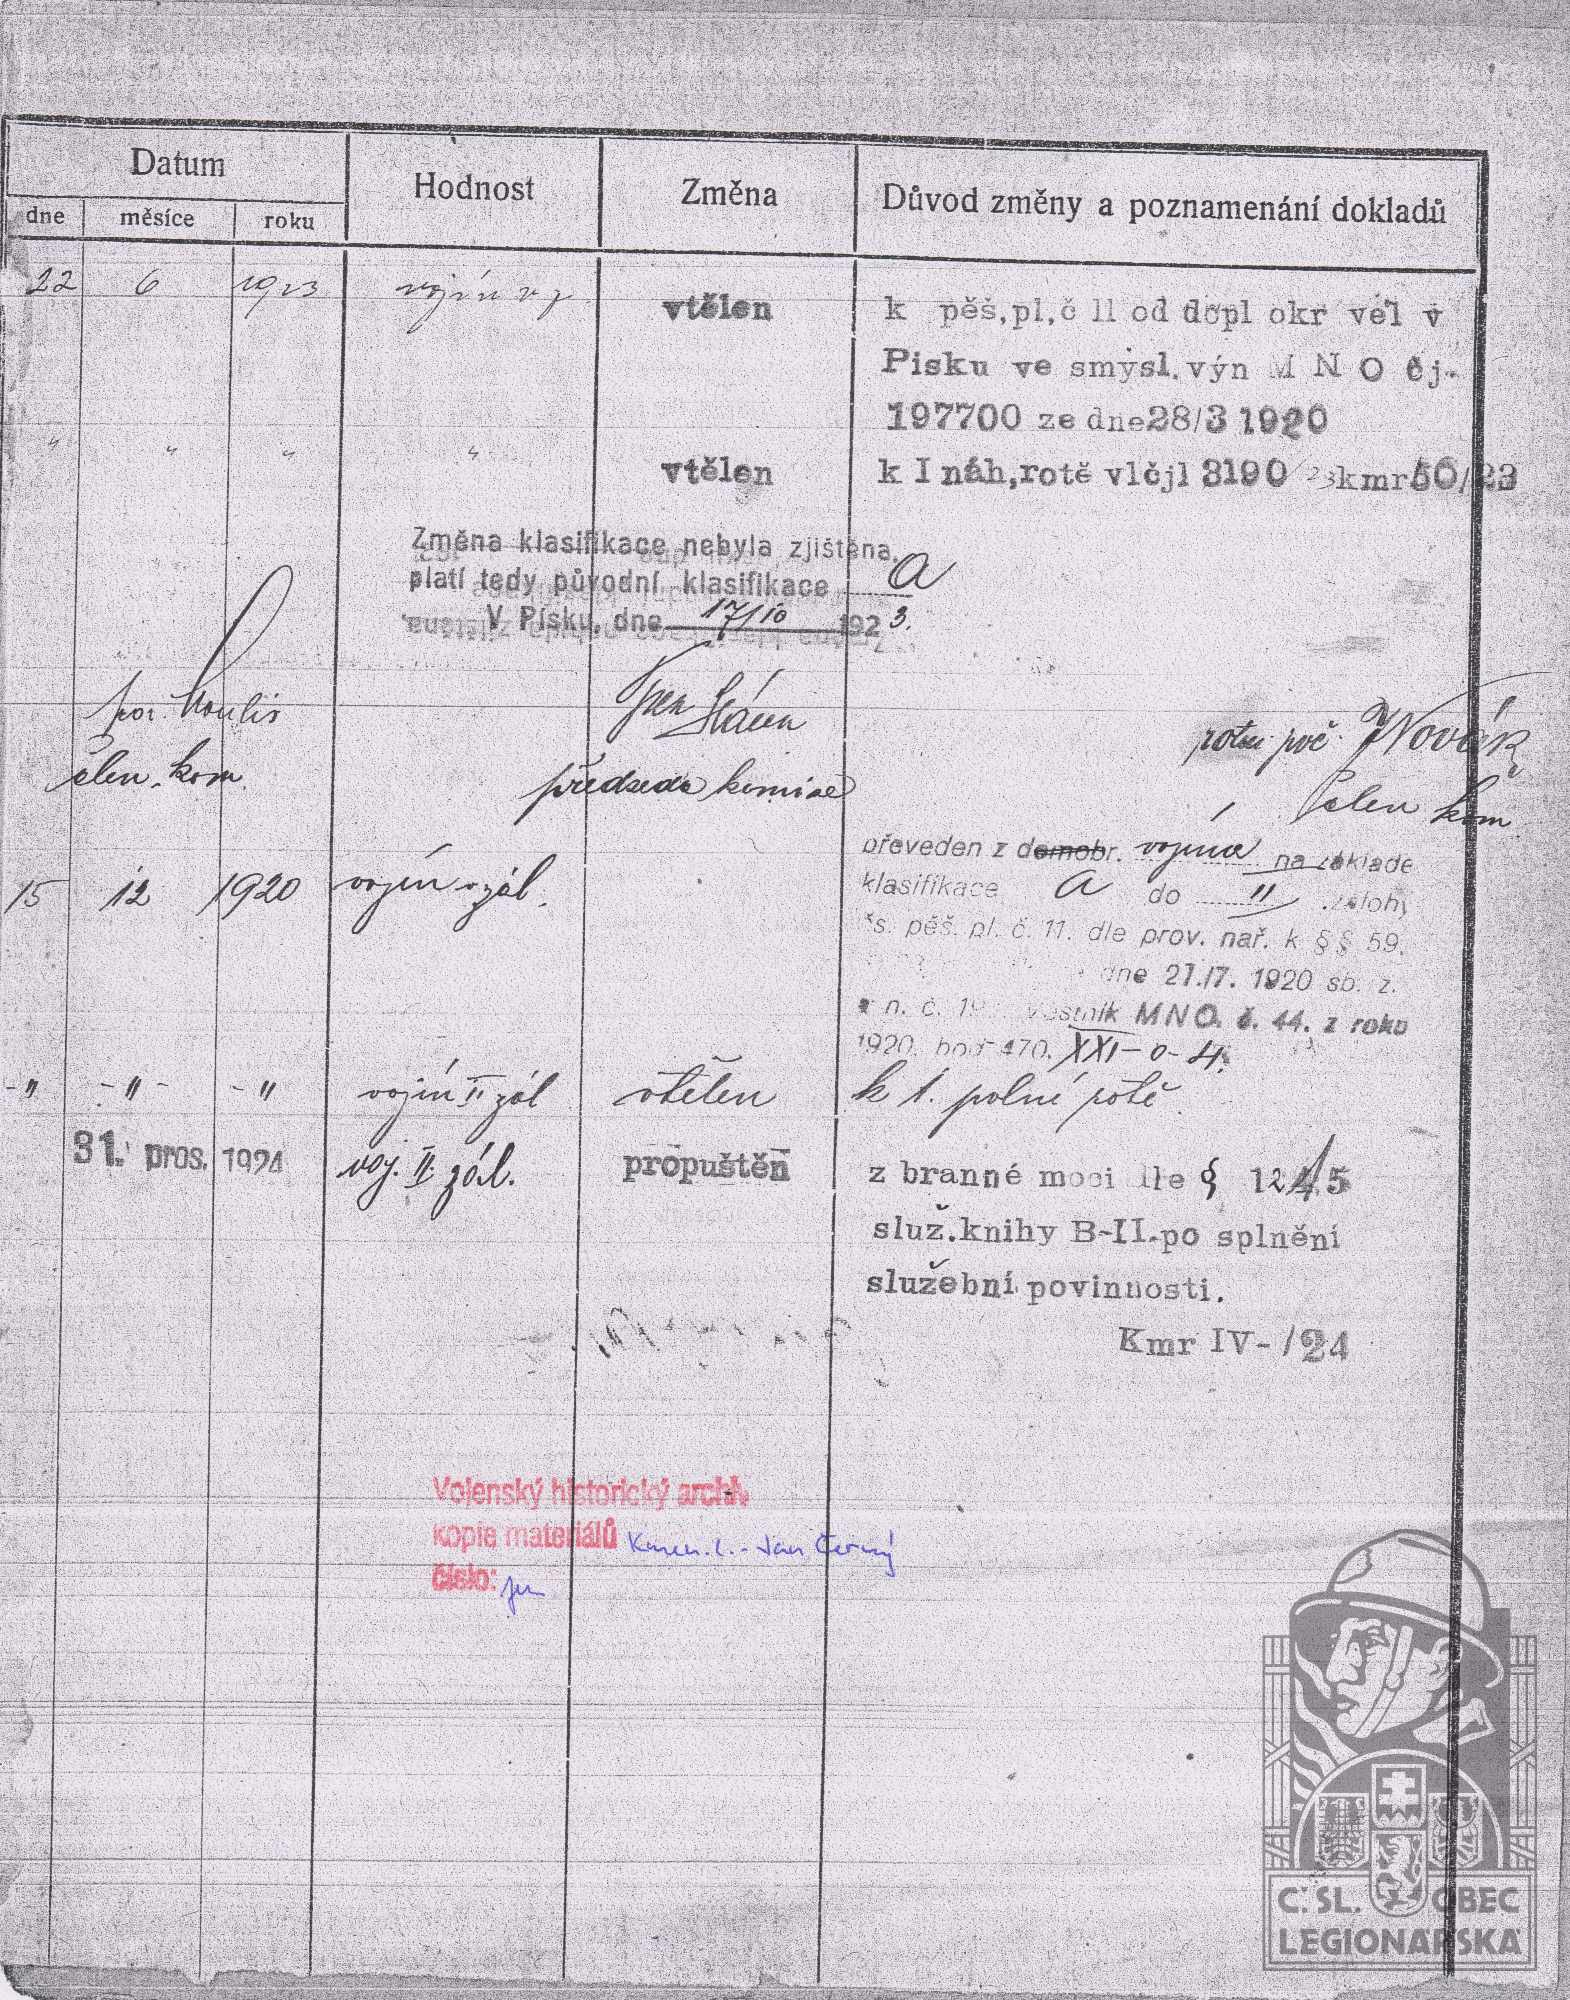 Datum Hodnost Změna Důvod změny a poznamenání dokladů
dne měsíce roku
22 6 1923 vojín v z. vtělen k pěš,pl,č 11 od dopl okr vel v
Pisku ve smysl.výn M N O čj.
197700 ze dne 28/3 1920
" " " " vtělen k I náh,rotě vlčjl 3190/23 kmr 50/23
Změna klasifikace nebyla zjištěna,
platí tedy původní klasifikace a
V Písku, dne 17/10 1923.
por.
člen. kom.
předseda komise
rotm. poč. Novák
člen kom
převeden z domobr. vojína na základe
klasifikace a do II zálohy
čs. pěš. pl. č. 11. dle prov. nař. k §§ 59.
dne 27./7. 1920 sb. z.
15 12 1920 vojín v zál.
a n. č. věstník MNO. č. 44. z roku
1920. bod 470. XXI-0-4.
-"- -"- -" vojín II zál vtělen k 1. polné rotě
31. pros. 1924 voj. II. zál. propuštěn z branné moci dle § 124/5
služ.knihy B-II.po splnění
služební povinnosti.
Kmr IV-/24
Vojenský historický archiv
kopie materiálů Kmen. l. - Jan Černý
číslo:
Č.SL. OBEC
LEGIONÁŘSKÁ